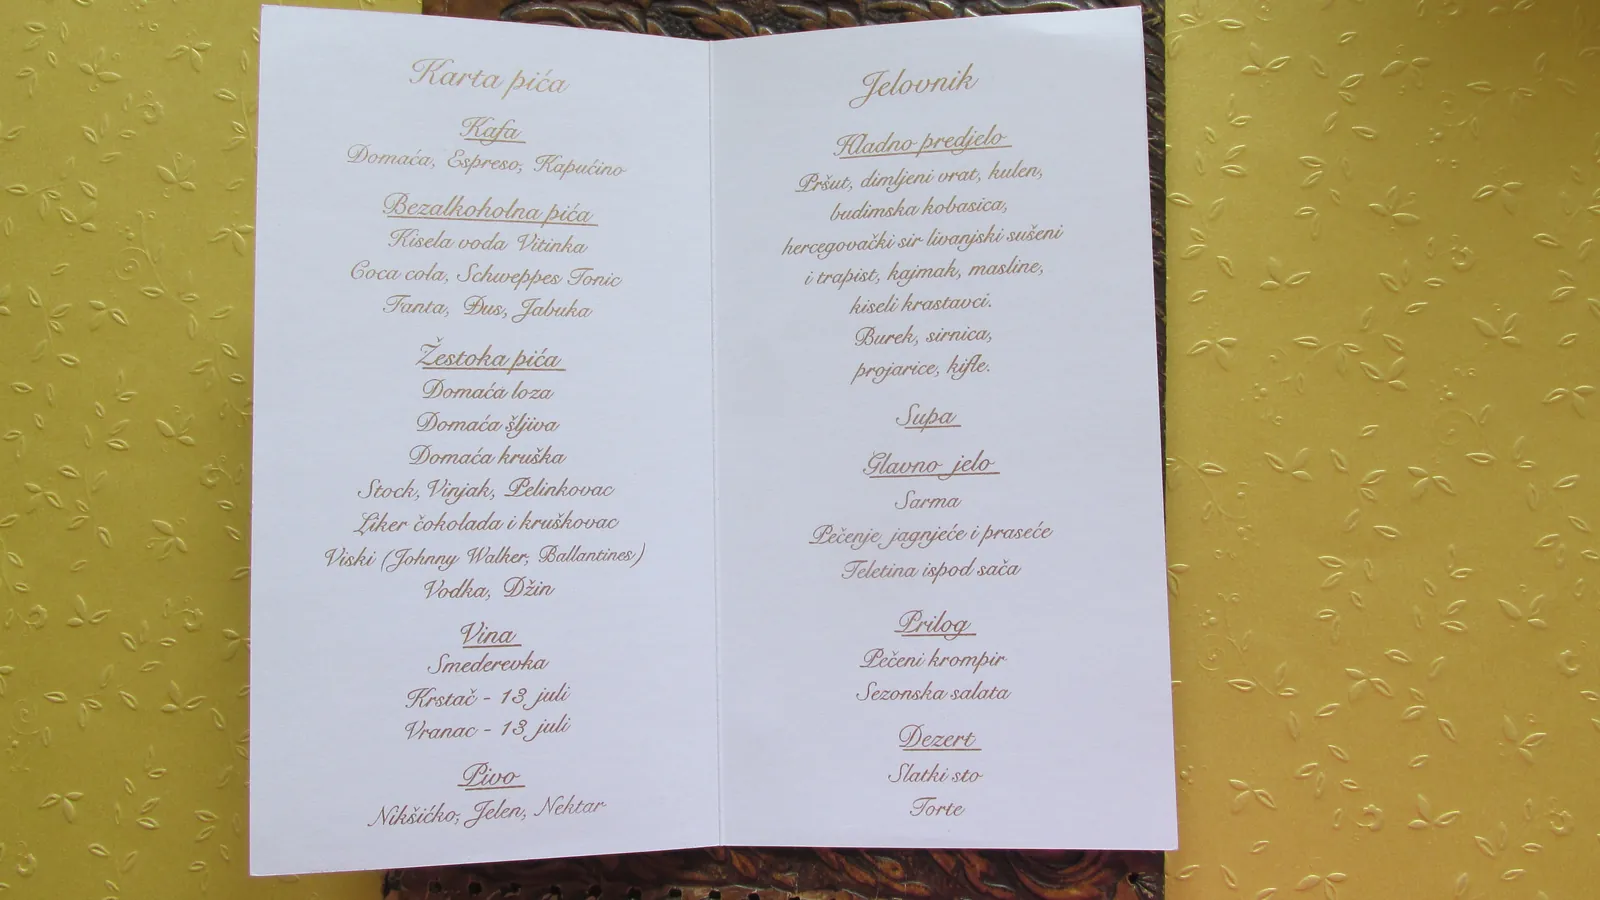 Karta pića
Kafa
Domaća, Espreso, Kapućino
Bezalkoholna pića
Kisela voda Vitinka
Coca cola, Schweppes Tonic
Fanta, Đus, Jabuka
Žestoka pića
Domaća loza
Domaća šljiva
Domaća kruška
Stock, Vinjak, Pelinkovac
Liker čokolada i kruškovac
Viski (Johnny Walker, Ballantines)
Vodka, Džin
Vina
Smederevka
Krstač - 13 juli
Vranac - 13 juli
Pivo
Nikšićko, Jelen, Nektar
Jelovnik
Hladno predjelo
Pršut, dimljeni vrat, kulen,
budimska kobasica,
hercegovački sir livanjski sušeni
i trapist, kajmak, masline,
kiseli krastavci.
Burek, sirnica,
projarice, kifle.
Supa
Glavno jelo
Sarma
Pečenje jagnjeće i praseće
Teletina ispod sača
Prilog
Pečeni krompir
Sezonska salata
Dezert
Slatki sto
Torte